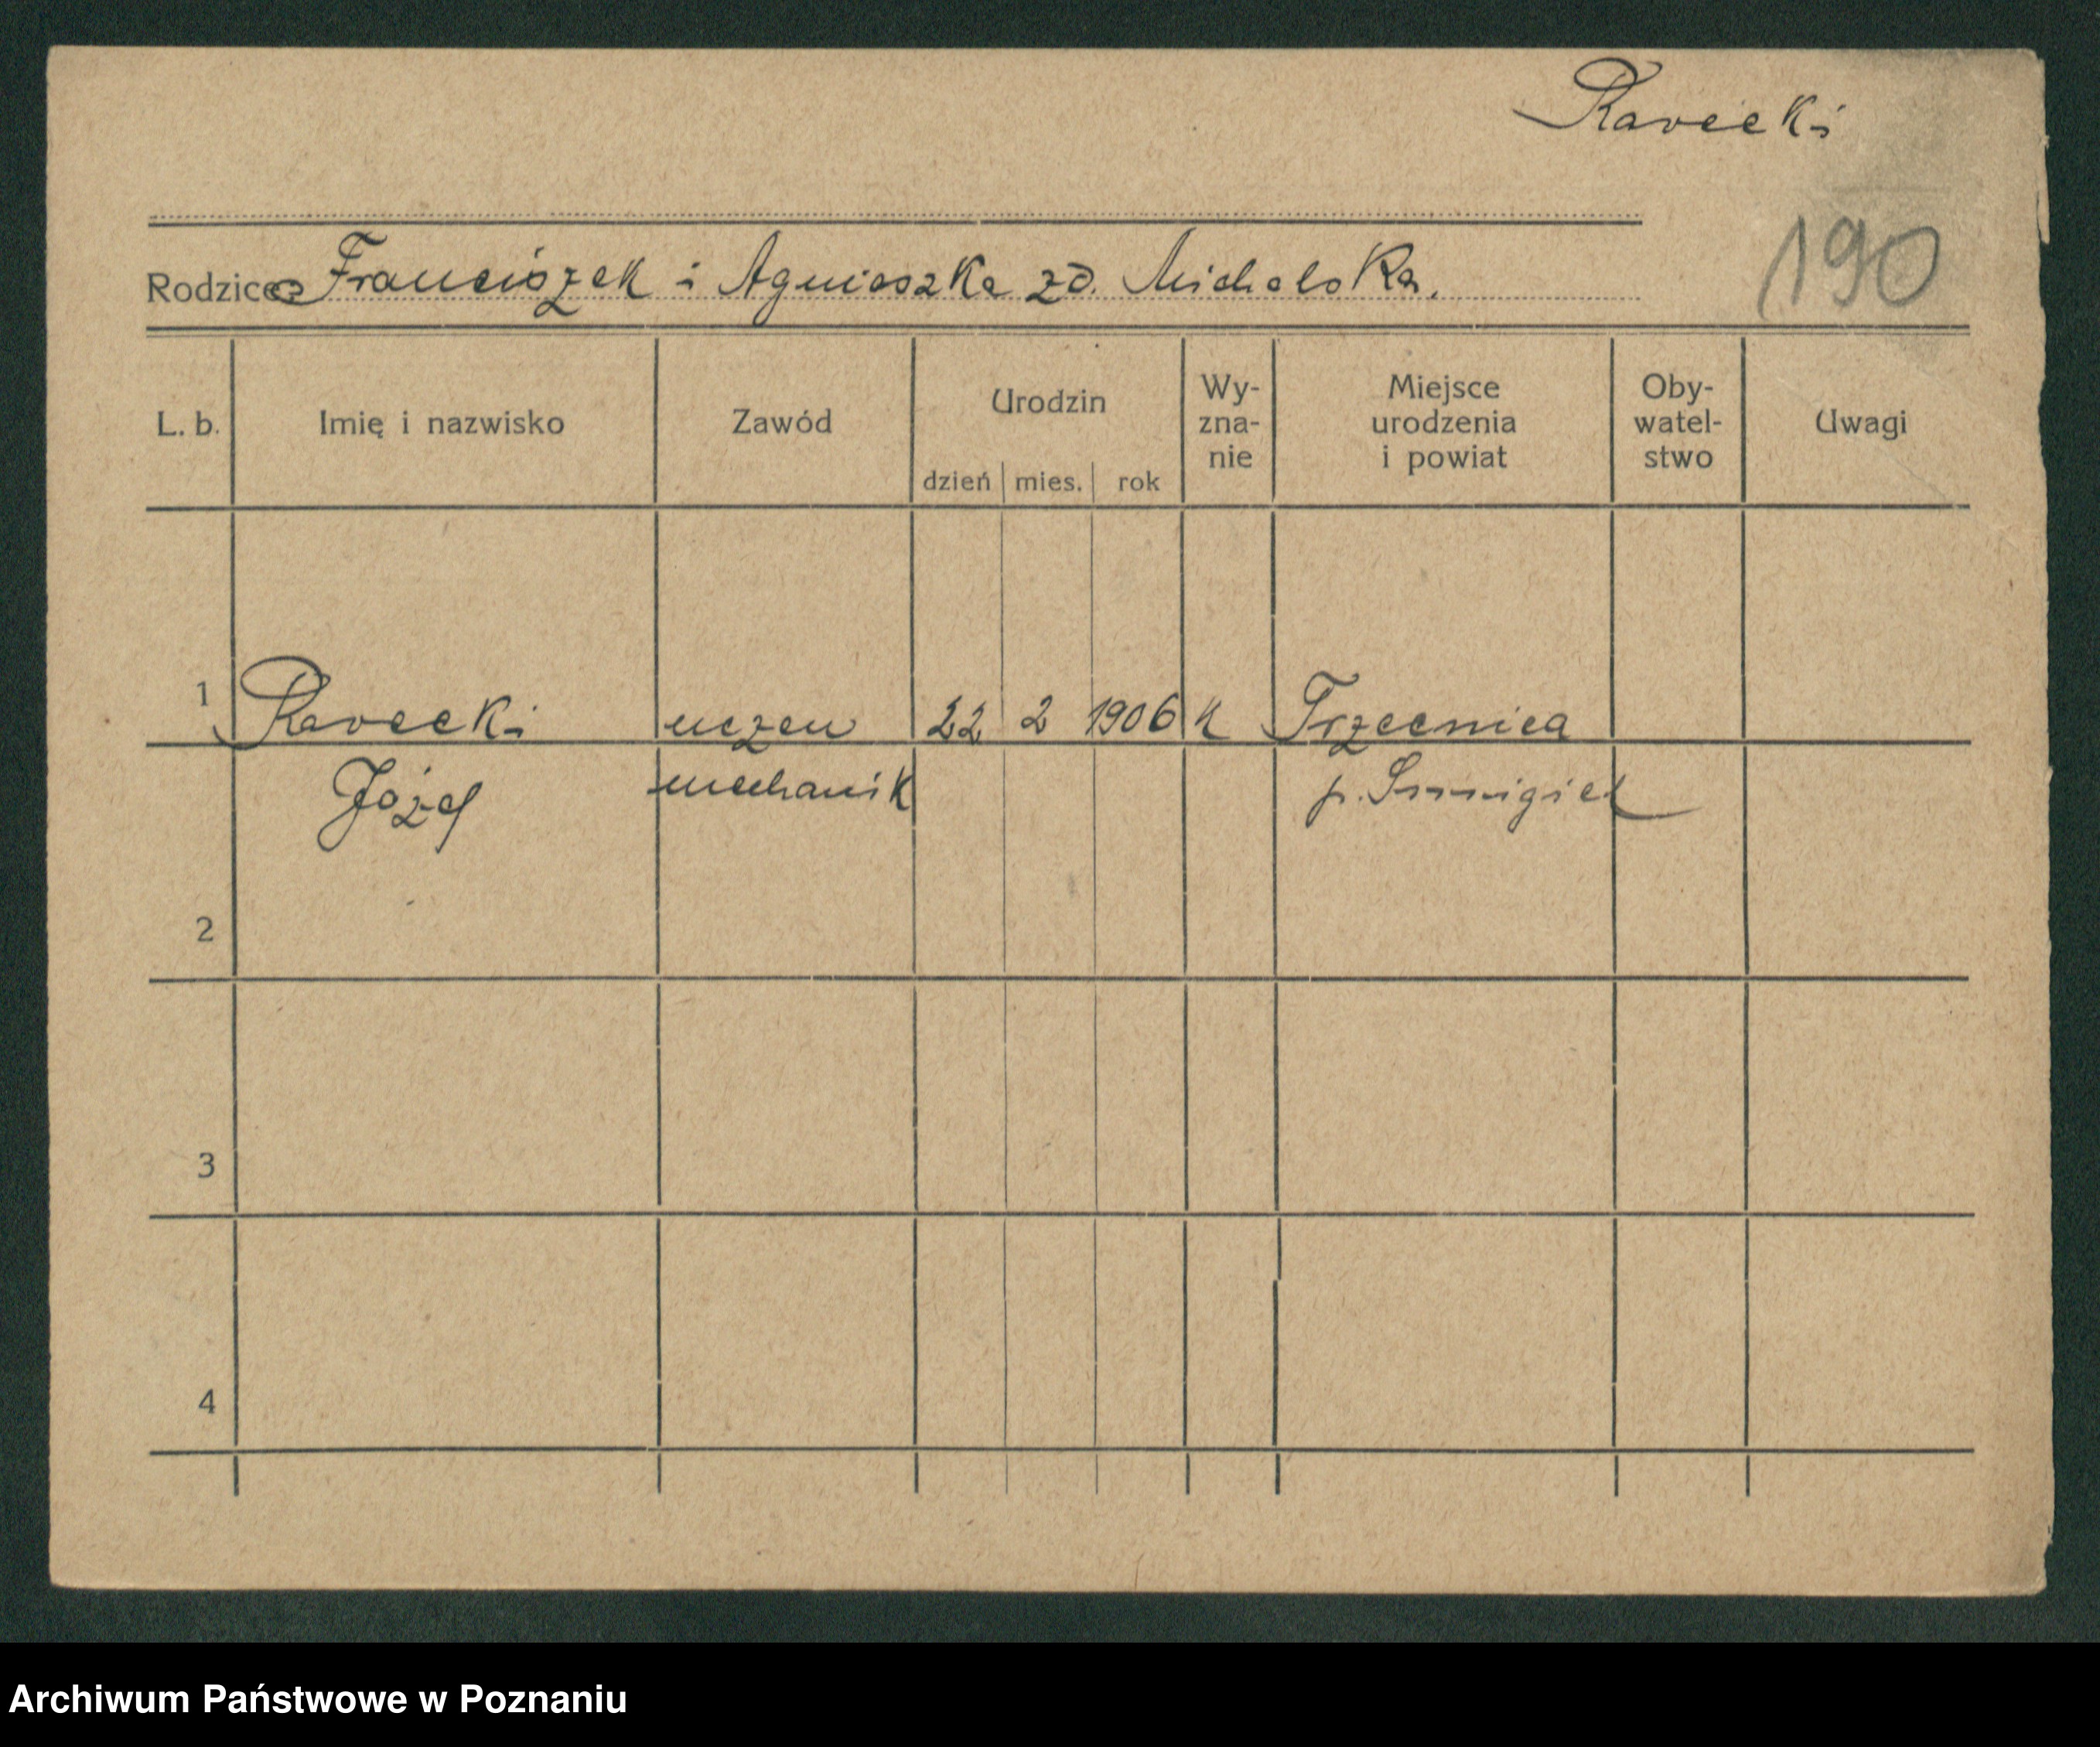 Ravecki
190
Rodzice Franciszek i Agnieszka zd. Michalska.
L. b. Imię i nazwisko Zawód Urodzin dzień mies. rok Wy-zna-nie Miejsce urodzenia i powiat Oby-watel-stwo Uwagi
1 Ravecki uczen 22 2 1906 k Trzecnica
Józef mechanik p. Smigiel
2
3
4
Archiwum Państwowe w Poznaniu